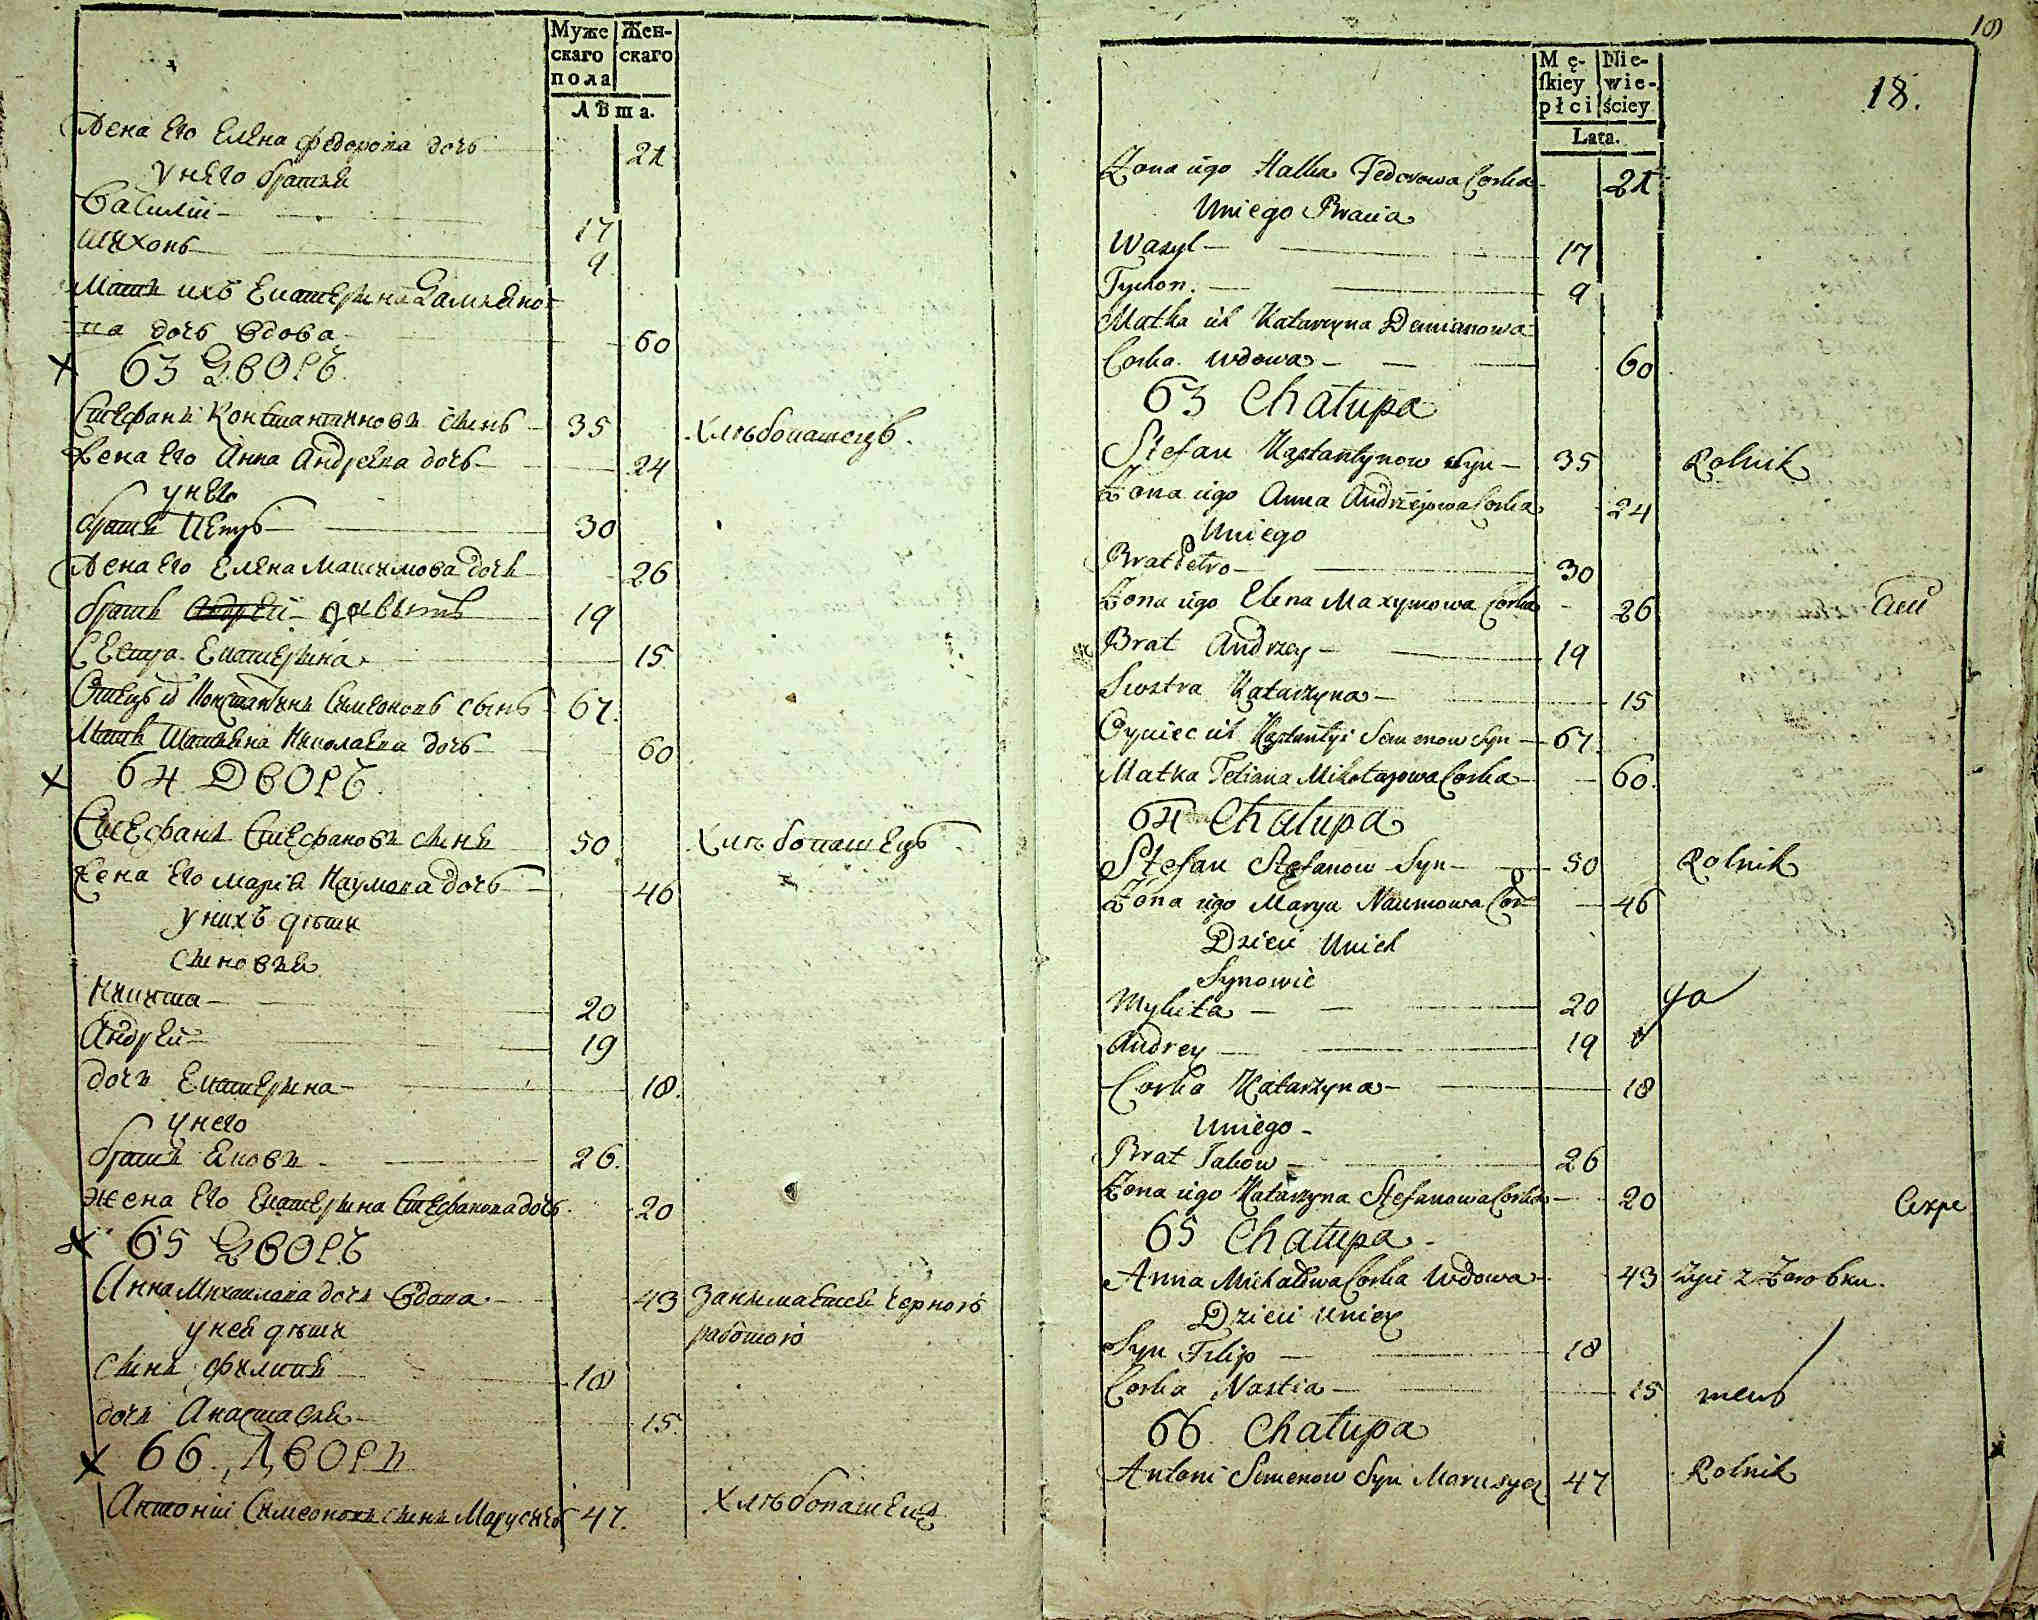 Муже
скаго
пола
Жен-
скаго
Лѣта.
Жена его Елена Федорова дочь 21
У него братья
Василий 17
Тихонъ 9
Мать ихъ Екатерина Дамiяно-
ва дочь вдова 60
63 Дворъ
Стефанъ Константиновъ сынъ 35 Хлѣбопашецъ.
Жена его Анна Андреева дочь 24
у него
братъ Петръ 30
Жена его Елена Максимова дочь 26
братъ Андрей 19
Сестра Екатерина 15
Отецъ Константинъ Симеоновъ сынъ 67.
Мать Татьяна Николаева дочь 60
64 Дворъ
Стефанъ Стефановъ сынъ 50 Хлѣбопашецъ
Жена его Марiя Наумова дочь 46
У нихъ дѣти
сыновья
Никита 20
Андрей 19
дочь Екатерина 18.
у него
братъ Яковъ 26.
жена его Екатерина Стефанова дочь 20
65 Дворъ
Анна Михаилова дочь вдова 43 Занимается черною
работою
у ней дѣти
сынъ Филипъ 18
дочь Анастасiя 15.
66. Дворъ
Антонiй Симеоновъ сынъ Марусичъ 47. Хлѣбопашецъ
18
Mę-
skiey
płci
Nie-
wie-
ściey
Lata.
18.
Żona iego Halka Fedorowa Corka 21
Uniego Bracia
Wasyl 17
Tychon. 9
Matka ich Katarzyna Demianowa
Corka Wdowa 60
63 Chałupa
Stefan Kąstantynow Syn 35 Rolnik
Żona iego Anna Andrzejowa Corka 24
Uniego
Brat Petro 30
Żona iego Elena Maxymowa Corka 26
Brat Andrzey 19
Siostra Katarzyna 15
Oyciec ich Kąstantyi Semenow Syn 67.
Matka Tetiana Mikołajowa Corka 60.
64 Chałupa
Stefan Stefanow Syn 50 Rolnik
Żona iego Marya Naumowa Cor 46
Dzieci Unich
Synowie
Mykita 20
Andrey 19
Corka Katarzyna 18
Uniego
Brat Jakow 26
Żona iego Katarzyna Stefanowa Corka 20
65 Chałupa
Anna Michałowa Corka Wdowa 43 żyie z Zarobku.
Dzieci Uniey
Syn Filip 18
Corka Nastia 15
66. Chałupa
Antoni Semenow Syn Marusycz 47 Rolnik